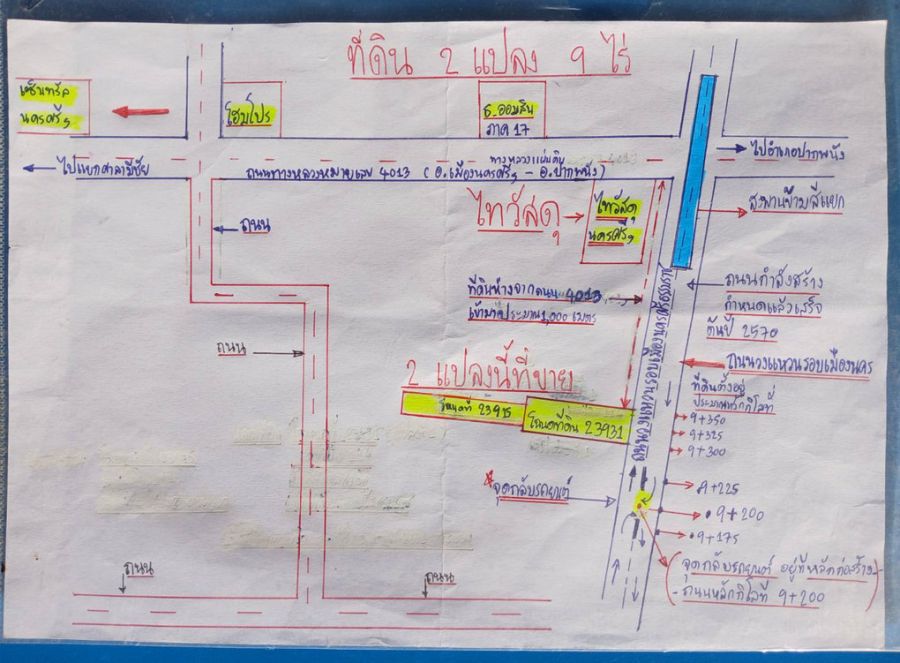 ที่ดิน 2 แปลง 9 ไร่
เซ็นทรัล
นครศรีฯ
โฮมโปร
ธ.ออมสิน
ภาค 17
ไปแยกศาลามีชัย
ทางหลวงแผ่นดิน 4013
ถนนทางหลวงหมายเลข 4013 (อ.เมืองนครศรีฯ - อ.ปากพนัง)
ไปอำเภอปากพนัง
สะพานข้ามสี่แยก
ถนน
ไทวัสดุ
ไทวัสดุ
นครศรีฯ
ที่ดินห่างจากถนน 4013
เข้ามาประมาณ 1,000 เมตร
ถนนกำลังสร้าง
กำหนดแล้วเสร็จ
ต้นปี 2570
ถนนวงแหวนรอบเมืองนครศรีธรรมราช
ถนนวงแหวนรอบเมืองนคร
ถนน
2 แปลงนี้ที่ขาย
โฉนดที่ 23915
โฉนดที่ดิน 23931
ที่ดินตั้งอยู่
ประมาณหลักกิโลที่
9+350
9+325
9+300
จุดกลับรถยนต์
9+225
9+200
9+175
(จุดกลับรถยนต์ อยู่ที่หลักก่อสร้าง-
-ถนนหลักกิโลที่ 9+200)
ถนน
ถนน